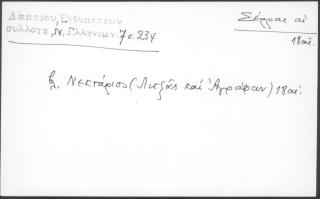 Λάμπρου, Ενθυμήσεων
συλλογή, Ν. Ελληνομν. 7 σ. 234
Σέρραι αἱ
18 αἰ.
βλ. Νεκτάριος (Λιτζᾶς καὶ Ἀγράφων) 18 αἰ.